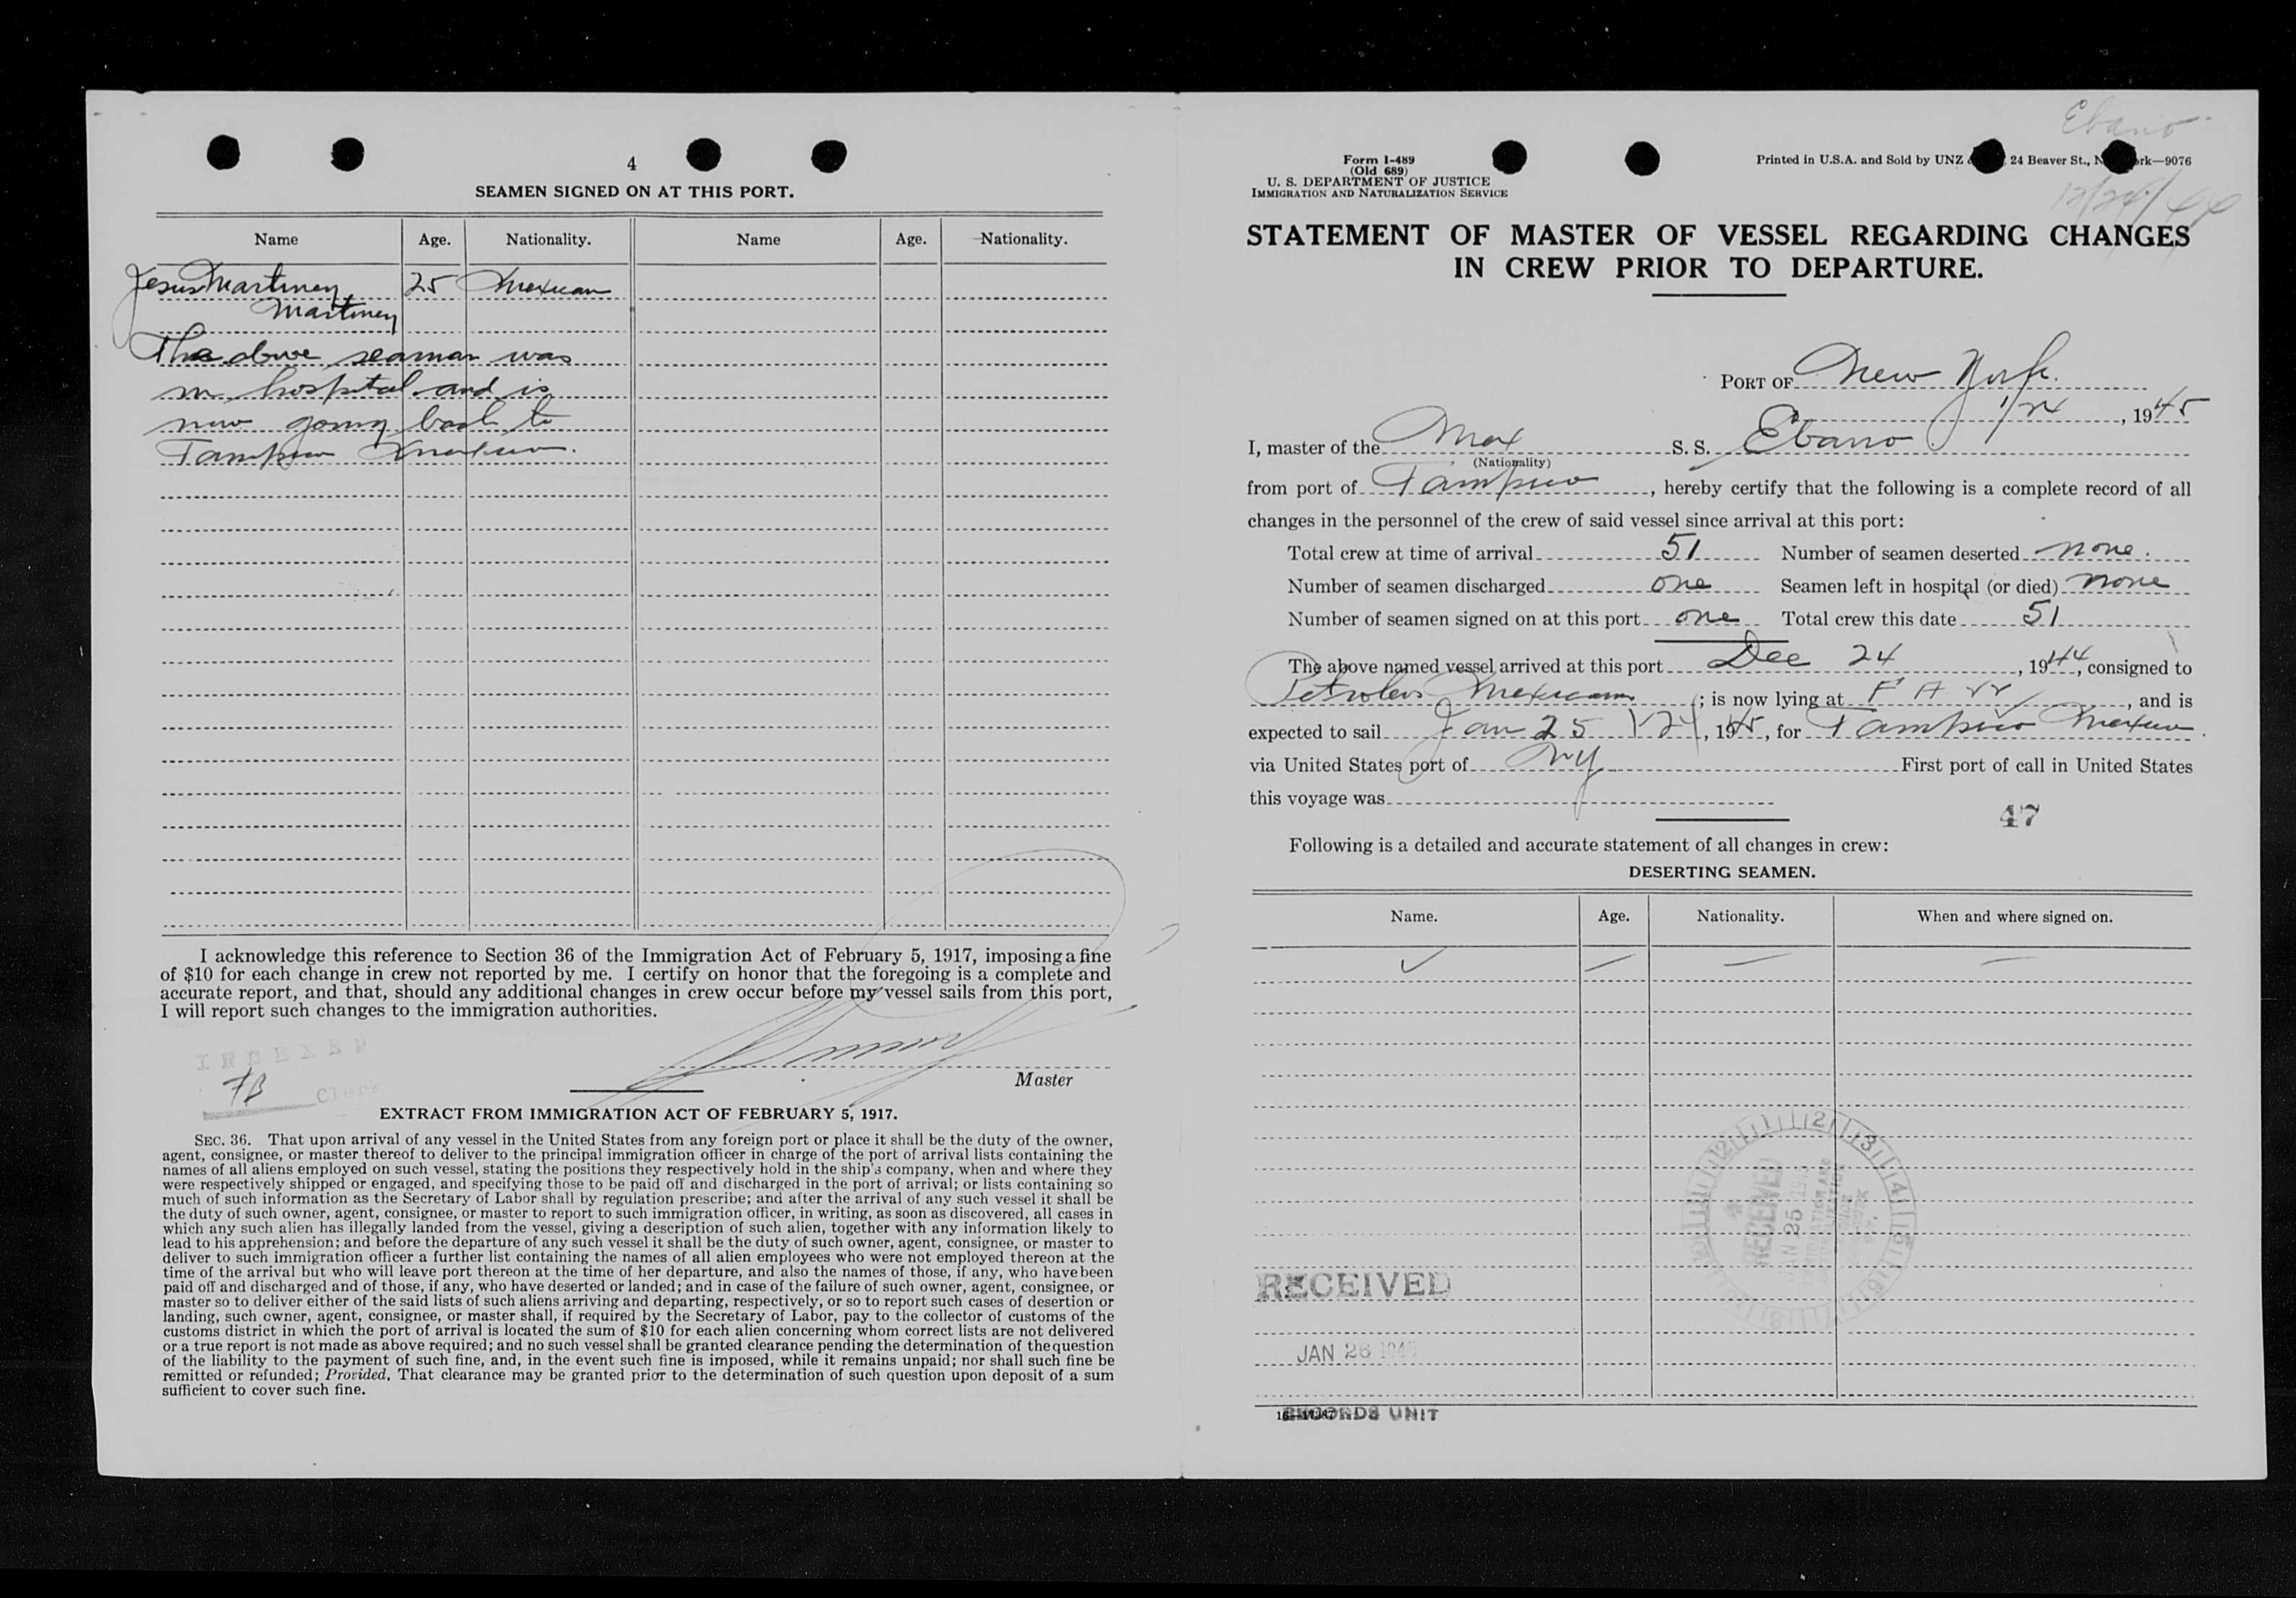 4
SEAMEN SIGNED ON AT THIS PORT.
Name Age. Nationality. Name Age. Nationality.
Jesus Martinez 25 Mexican
Martinez
The above seaman was
in hospital and is
now going back to
Tampico Mexico.
I acknowledge this reference to Section 36 of the Immigration Act of February 5, 1917, imposing a fine
of $10 for each change in crew not reported by me. I certify on honor that the foregoing is a complete and
accurate report, and that, should any additional changes in crew occur before my vessel sails from this port,
I will report such changes to the immigration authorities.
INDEXED
Clerk
Master
EXTRACT FROM IMMIGRATION ACT OF FEBRUARY 5, 1917.
SEC. 36. That upon arrival of any vessel in the United States from any foreign port or place it shall be the duty of the owner,
agent, consignee, or master thereof to deliver to the principal immigration officer in charge of the port of arrival lists containing the
names of all aliens employed on such vessel, stating the positions they respectively hold in the ship's company, when and where they
were respectively shipped or engaged, and specifying those to be paid off and discharged in the port of arrival; or lists containing so
much of such information as the Secretary of Labor shall by regulation prescribe; and after the arrival of any such vessel it shall be
the duty of such owner, agent, consignee, or master to report to such immigration officer, in writing, as soon as discovered, all cases in
which any such alien has illegally landed from the vessel, giving a description of such alien, together with any information likely to
lead to his apprehension; and before the departure of any such vessel it shall be the duty of such owner, agent, consignee, or master to
deliver to such immigration officer a further list containing the names of all alien employees who were not employed thereon at the
time of the arrival but who will leave port thereon at the time of her departure, and also the names of those, if any, who have been
paid off and discharged and of those, if any, who have deserted or landed; and in case of the failure of such owner, agent, consignee, or
master so to deliver either of the said lists of such aliens arriving and departing, respectively, or so to report such cases of desertion or
landing, such owner, agent, consignee, or master shall, if required by the Secretary of Labor, pay to the collector of customs of the
customs district in which the port of arrival is located the sum of $10 for each alien concerning whom correct lists are not delivered
or a true report is not made as above required; and no such vessel shall be granted clearance pending the determination of the question
of the liability to the payment of such fine, and, in the event such fine is imposed, while it remains unpaid; nor shall such fine be
remitted or refunded; Provided, That clearance may be granted prior to the determination of such question upon deposit of a sum
sufficient to cover such fine.
Ebano
12/24/44
Form I-489
(Old 689)
U. S. DEPARTMENT OF JUSTICE
IMMIGRATION AND NATURALIZATION SERVICE
Printed in U.S.A. and Sold by UNZ 24 Beaver St., 9076
STATEMENT OF MASTER OF VESSEL REGARDING CHANGES
IN CREW PRIOR TO DEPARTURE.
PORT OF New York.
1/24, 1945
I, master of the Mex S. S. Ebano
(Nationality)
from port of Tampico, hereby certify that the following is a complete record of all
changes in the personnel of the crew of said vessel since arrival at this port:
Total crew at time of arrival 51 Number of seamen deserted none.
Number of seamen discharged one Seamen left in hospital (or died) none
Number of seamen signed on at this port one Total crew this date 51
The above named vessel arrived at this port Dec 24, 1944, consigned to
Petroleos Mexicanos; is now lying at, and is
expected to sail Jan 25 1-24, 1945, for Tampico Mexico.
via United States port of NY First port of call in United States
this voyage was
47
Following is a detailed and accurate statement of all changes in crew:
DESERTING SEAMEN.
Name. Age. Nationality. When and where signed on.
RECEIVED
JAN 25
RECEIVED
JAN 26 194
RECORDS UNIT